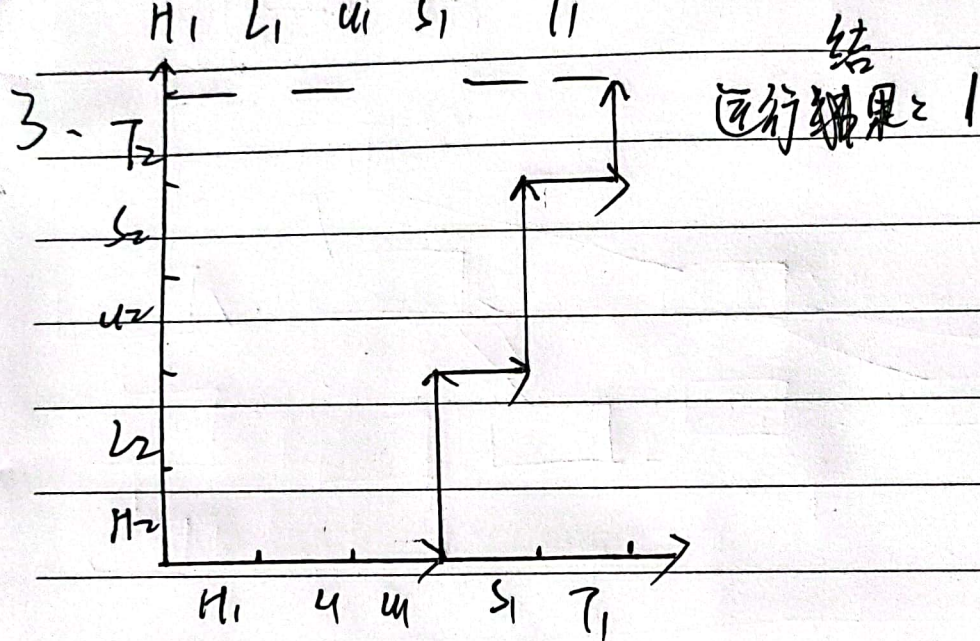 H₁ L₁ U₁ S₁ T₁
结
3、 T₂ 运行结果: 1
S₂
U₂
L₂
H₂
H₁ L₁ U₁ S₁ T₁